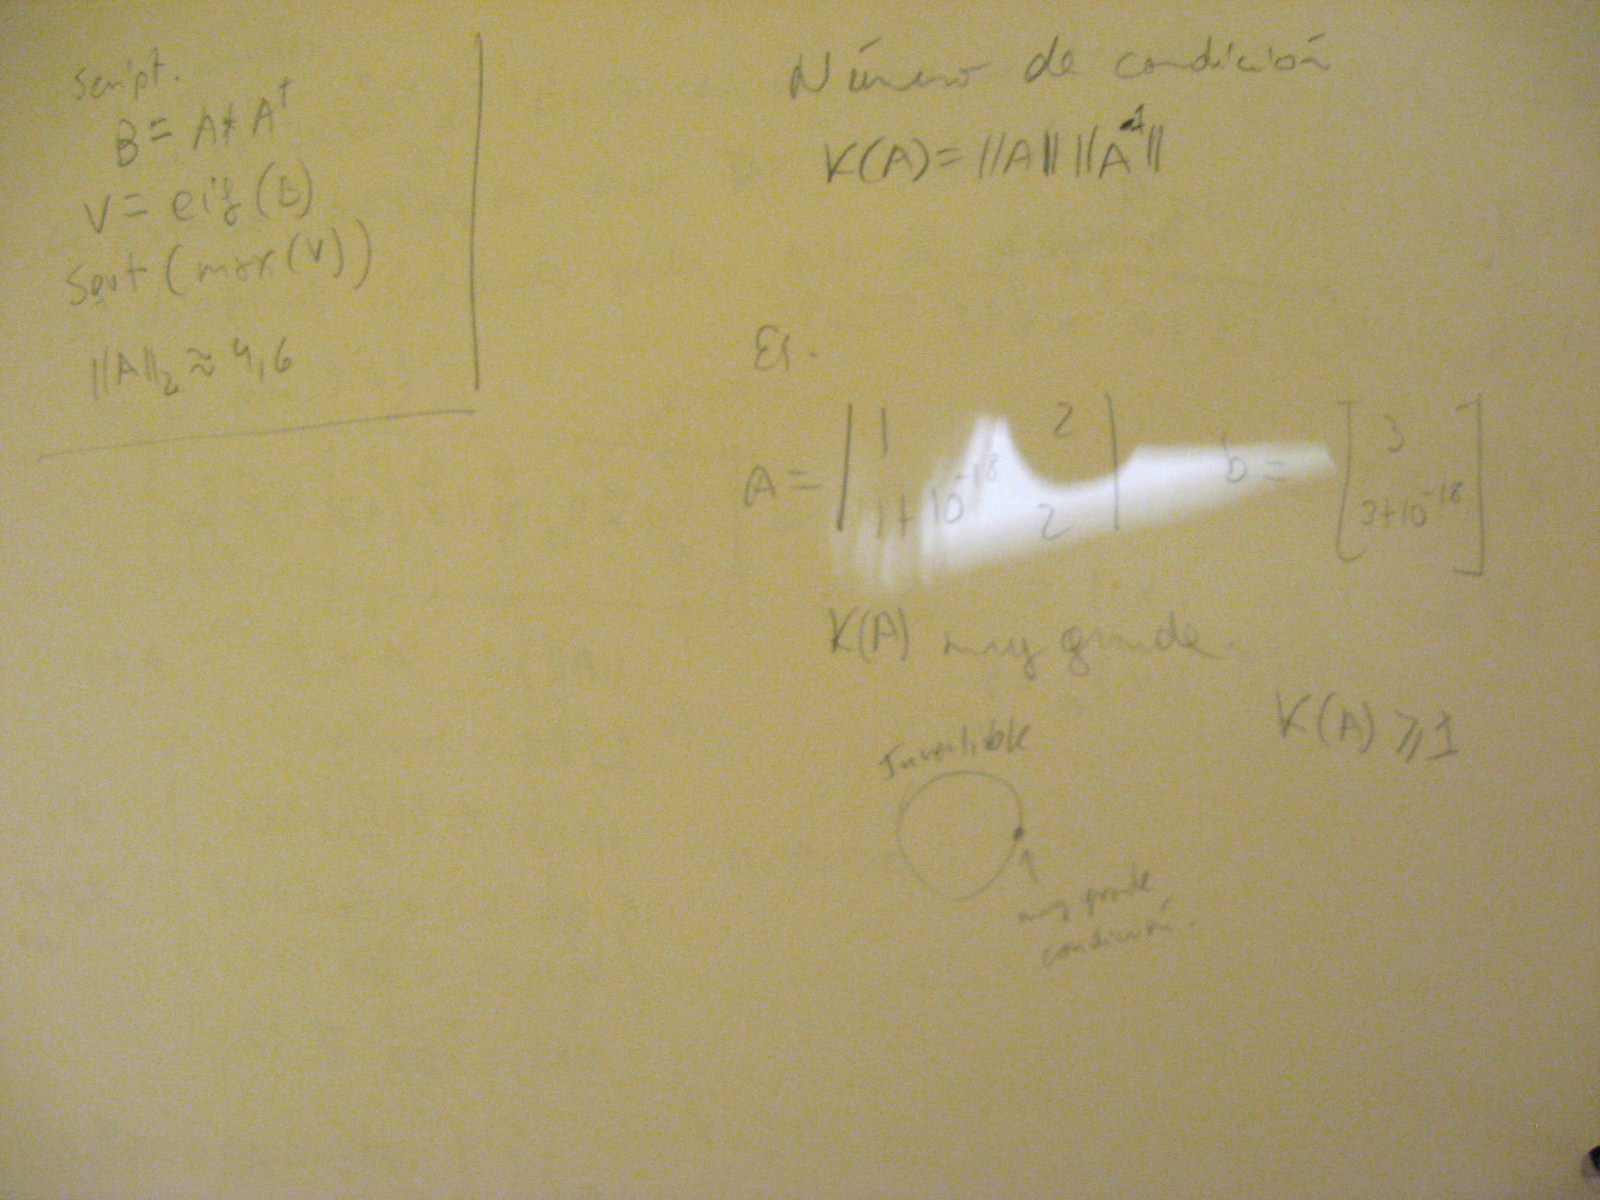 Script.
B = A * A^t
V = eig(B)
sqrt(max(V))
||A||₂ ≈ 4,6
Número de condición
K(A) = ||A|| ||A^-1||
Ej.
A = | 1 2 | b = [ 3 ]
| 1+10^-18 2 | [ 3+10^-18 ]
K(A) muy grande.
K(A) ≥ 1
Invertible
muy grande
condición.